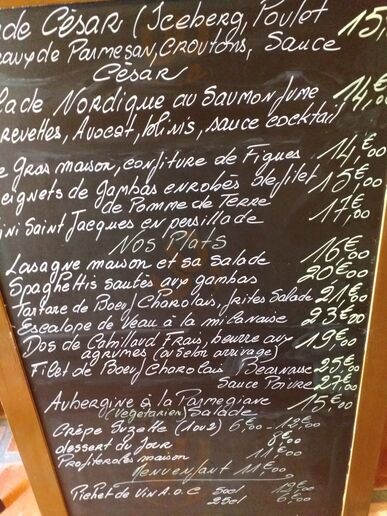 de César (Iceberg, Poulet 15,
eaux de Parmesan, Croutons, Sauce
César
lade Nordique au Saumon fumé 14,€
revettes, Avocat, blinis, sauce cocktail
e Gras maison, confiture de Figues 14,€00
eignets de gambas enrobés de filet 15,€00
de Pomme de Terre
ini Saint Jacques en persillade 17,€00
Nos Plats
Lasagne maison et sa Salade 16€00
Spaghettis sautés aux gambas 20€00
Tartare de Boeuf Charolais, frites Salade 21,€00
Escalope de Veau à la milanaise 23€00
Dos de Cabillaud Frais, beurre aux 19€00
agrumes (ou selon arrivage)
Filet de Boeuf Charolais Bearnaise 25€00
Sauce Poivre 27€00
Aubergine à la Parmegiane 15€00
(Végetarien) Salade
Crêpe Suzette (1ou2) 6€00 - 12€00
dessert du Jour 8€00
Profiteroles maison 11€00
Menu enfant 11€00
Pichet de Vin A.O.C 50cl 12€00
25cl 6€00